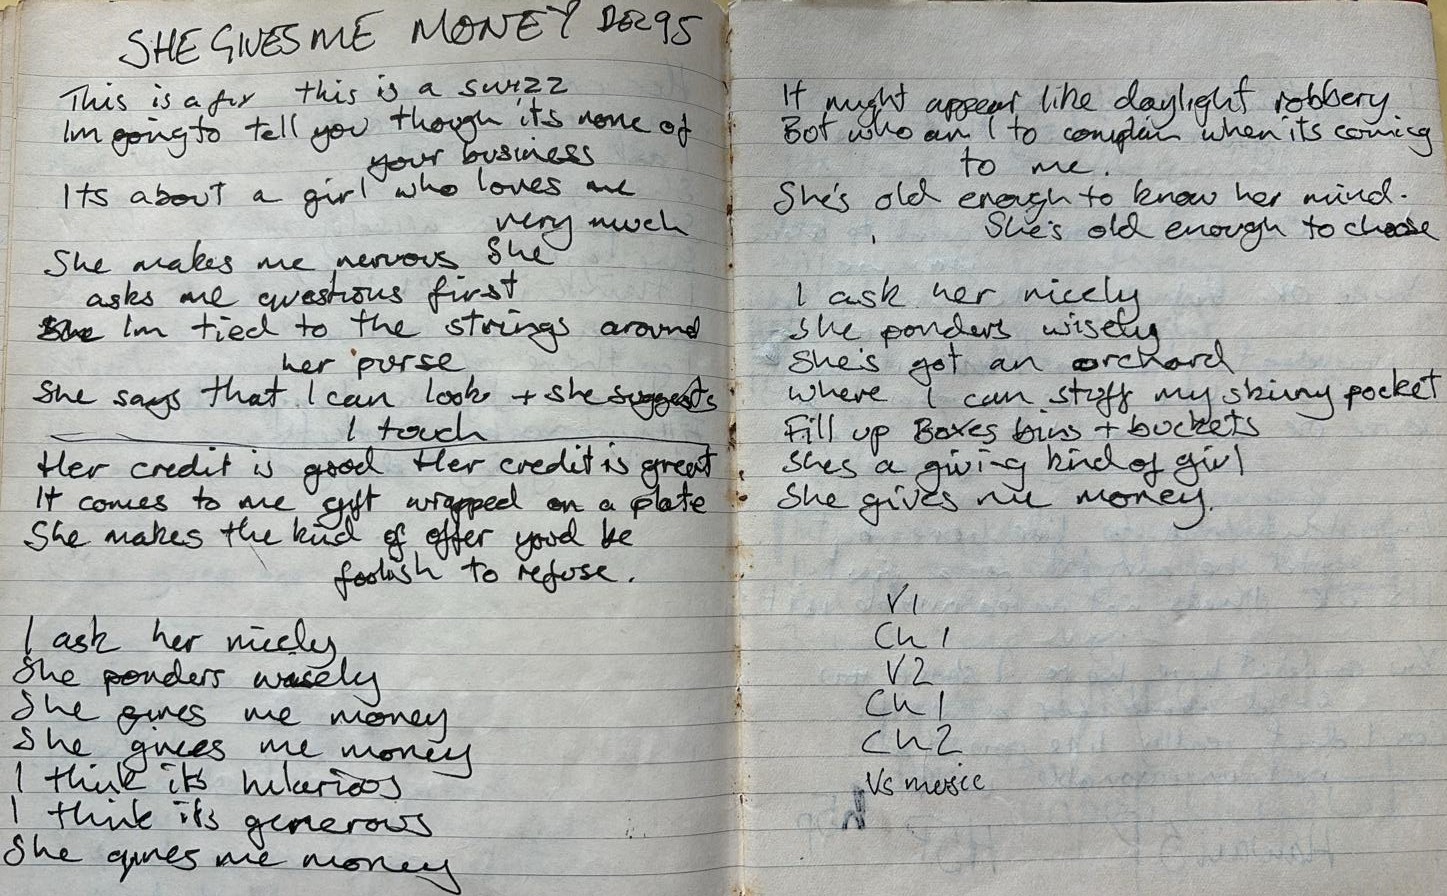 SHE GIVES ME MONEY DEC 95
This is a fix this is a swizz
Im going to tell you though its none of
your business
Its about a girl who loves me
very much
She makes me nervous She
asks me questions first
She Im tied to the strings around
her purse
She says that I can look + she suggests
I touch
Her credit is good Her credit is great
It comes to me gift wrapped on a plate
She makes the kind of offer youd be
foolish to refuse.
I ask her nicely
She ponders wisely
She gives me money
She gives me money
I think its hilarious
I think its generous
She gives me money
It might appear like daylight robbery
But who am I to complain when its coming
to me.
She's old enough to know her mind.
She's old enough to choose
I ask her nicely
She ponders wisely
She's got an orchard
where I can stuff my skinny pocket
Fill up Boxes bins + buckets
Shes a giving kind of girl
She gives me money.
V1
Ch 1
V2
Ch 1
Ch 2
Vs music